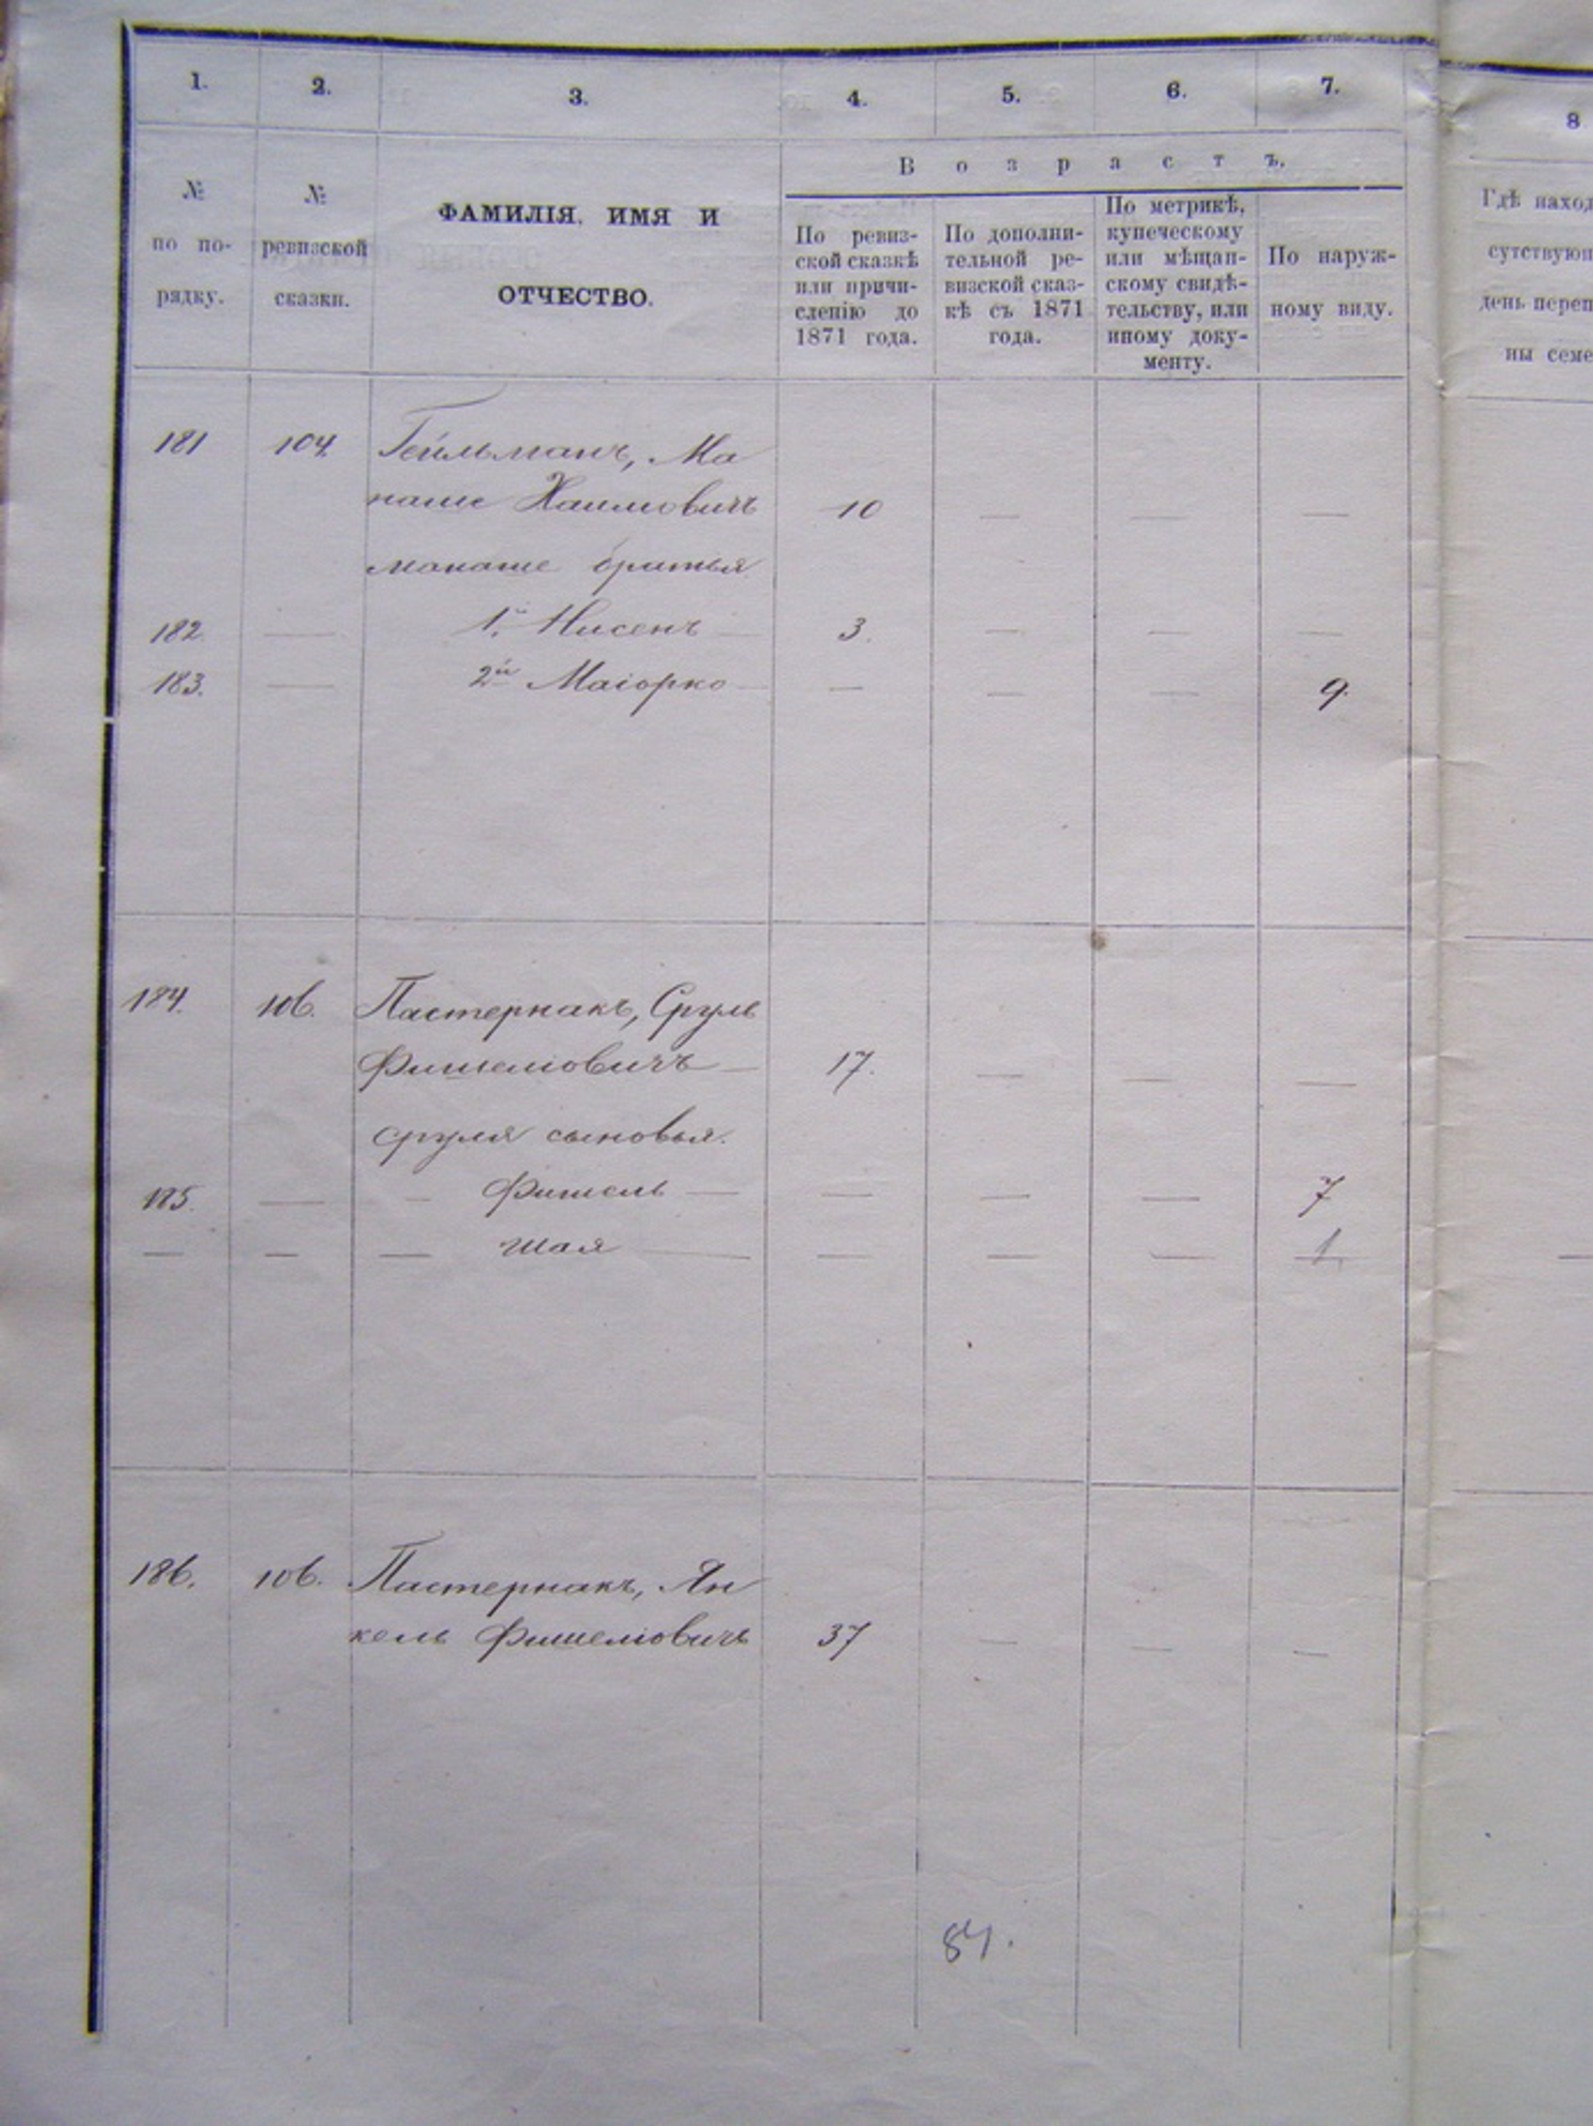 1. 2. 3. 4. 5. 6. 7. 8
В о з р а с т ъ.
№ по по-рядку.
№ ревизской сказки.
ФАМИЛІЯ, ИМЯ И
ОТЧЕСТВО.
По ревиз-
ской сказкѣ
или причи-
сленію до
1871 года.
По дополни-
тельной ре-
визской сказ-
кѣ съ 1871
года.
По метрикѣ,
купеческому
или мѣщан-
скому свидѣ-
тельству, или
иному доку-
менту.
По наруж-
ному виду.
Гдѣ наход
сутствующ
день переп
ны семе
181 104. Гейльманъ, Ма
наше Хаимовичъ 10 — — —
Манаше братья
182. — 1й Нисенъ — 3. — — —
183. — 2й Маіорко — — — — 9.
184. 106. Пастернакъ, Сруль
Фишеліовичъ — 17. — — —
Сруля сыновья.
185. — — Фишель — — — — 7
— — — Шая — — — — 1
186. 106. Пастернакъ, Ян
кель Фишеліовичъ 37 — — —
84.